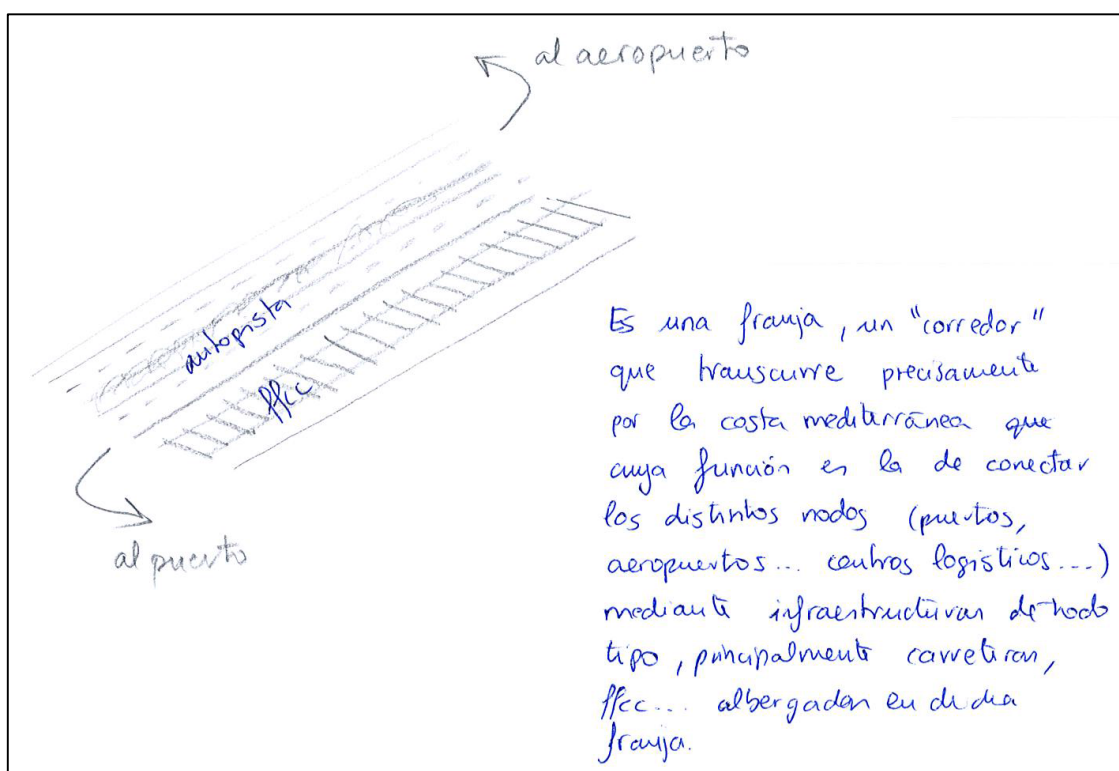 al aeropuerto
autopista
ffcc
al puerto
Es una franja, un "corredor"
que transcurre precisamente
por la costa mediterránea que
cuya función es la de conectar
los distintos nodos (puertos,
aeropuertos... centros logísticos...)
mediante infraestructuras de todo
tipo, principalmente carreteras,
ffcc... albergadas en dicha
franja.